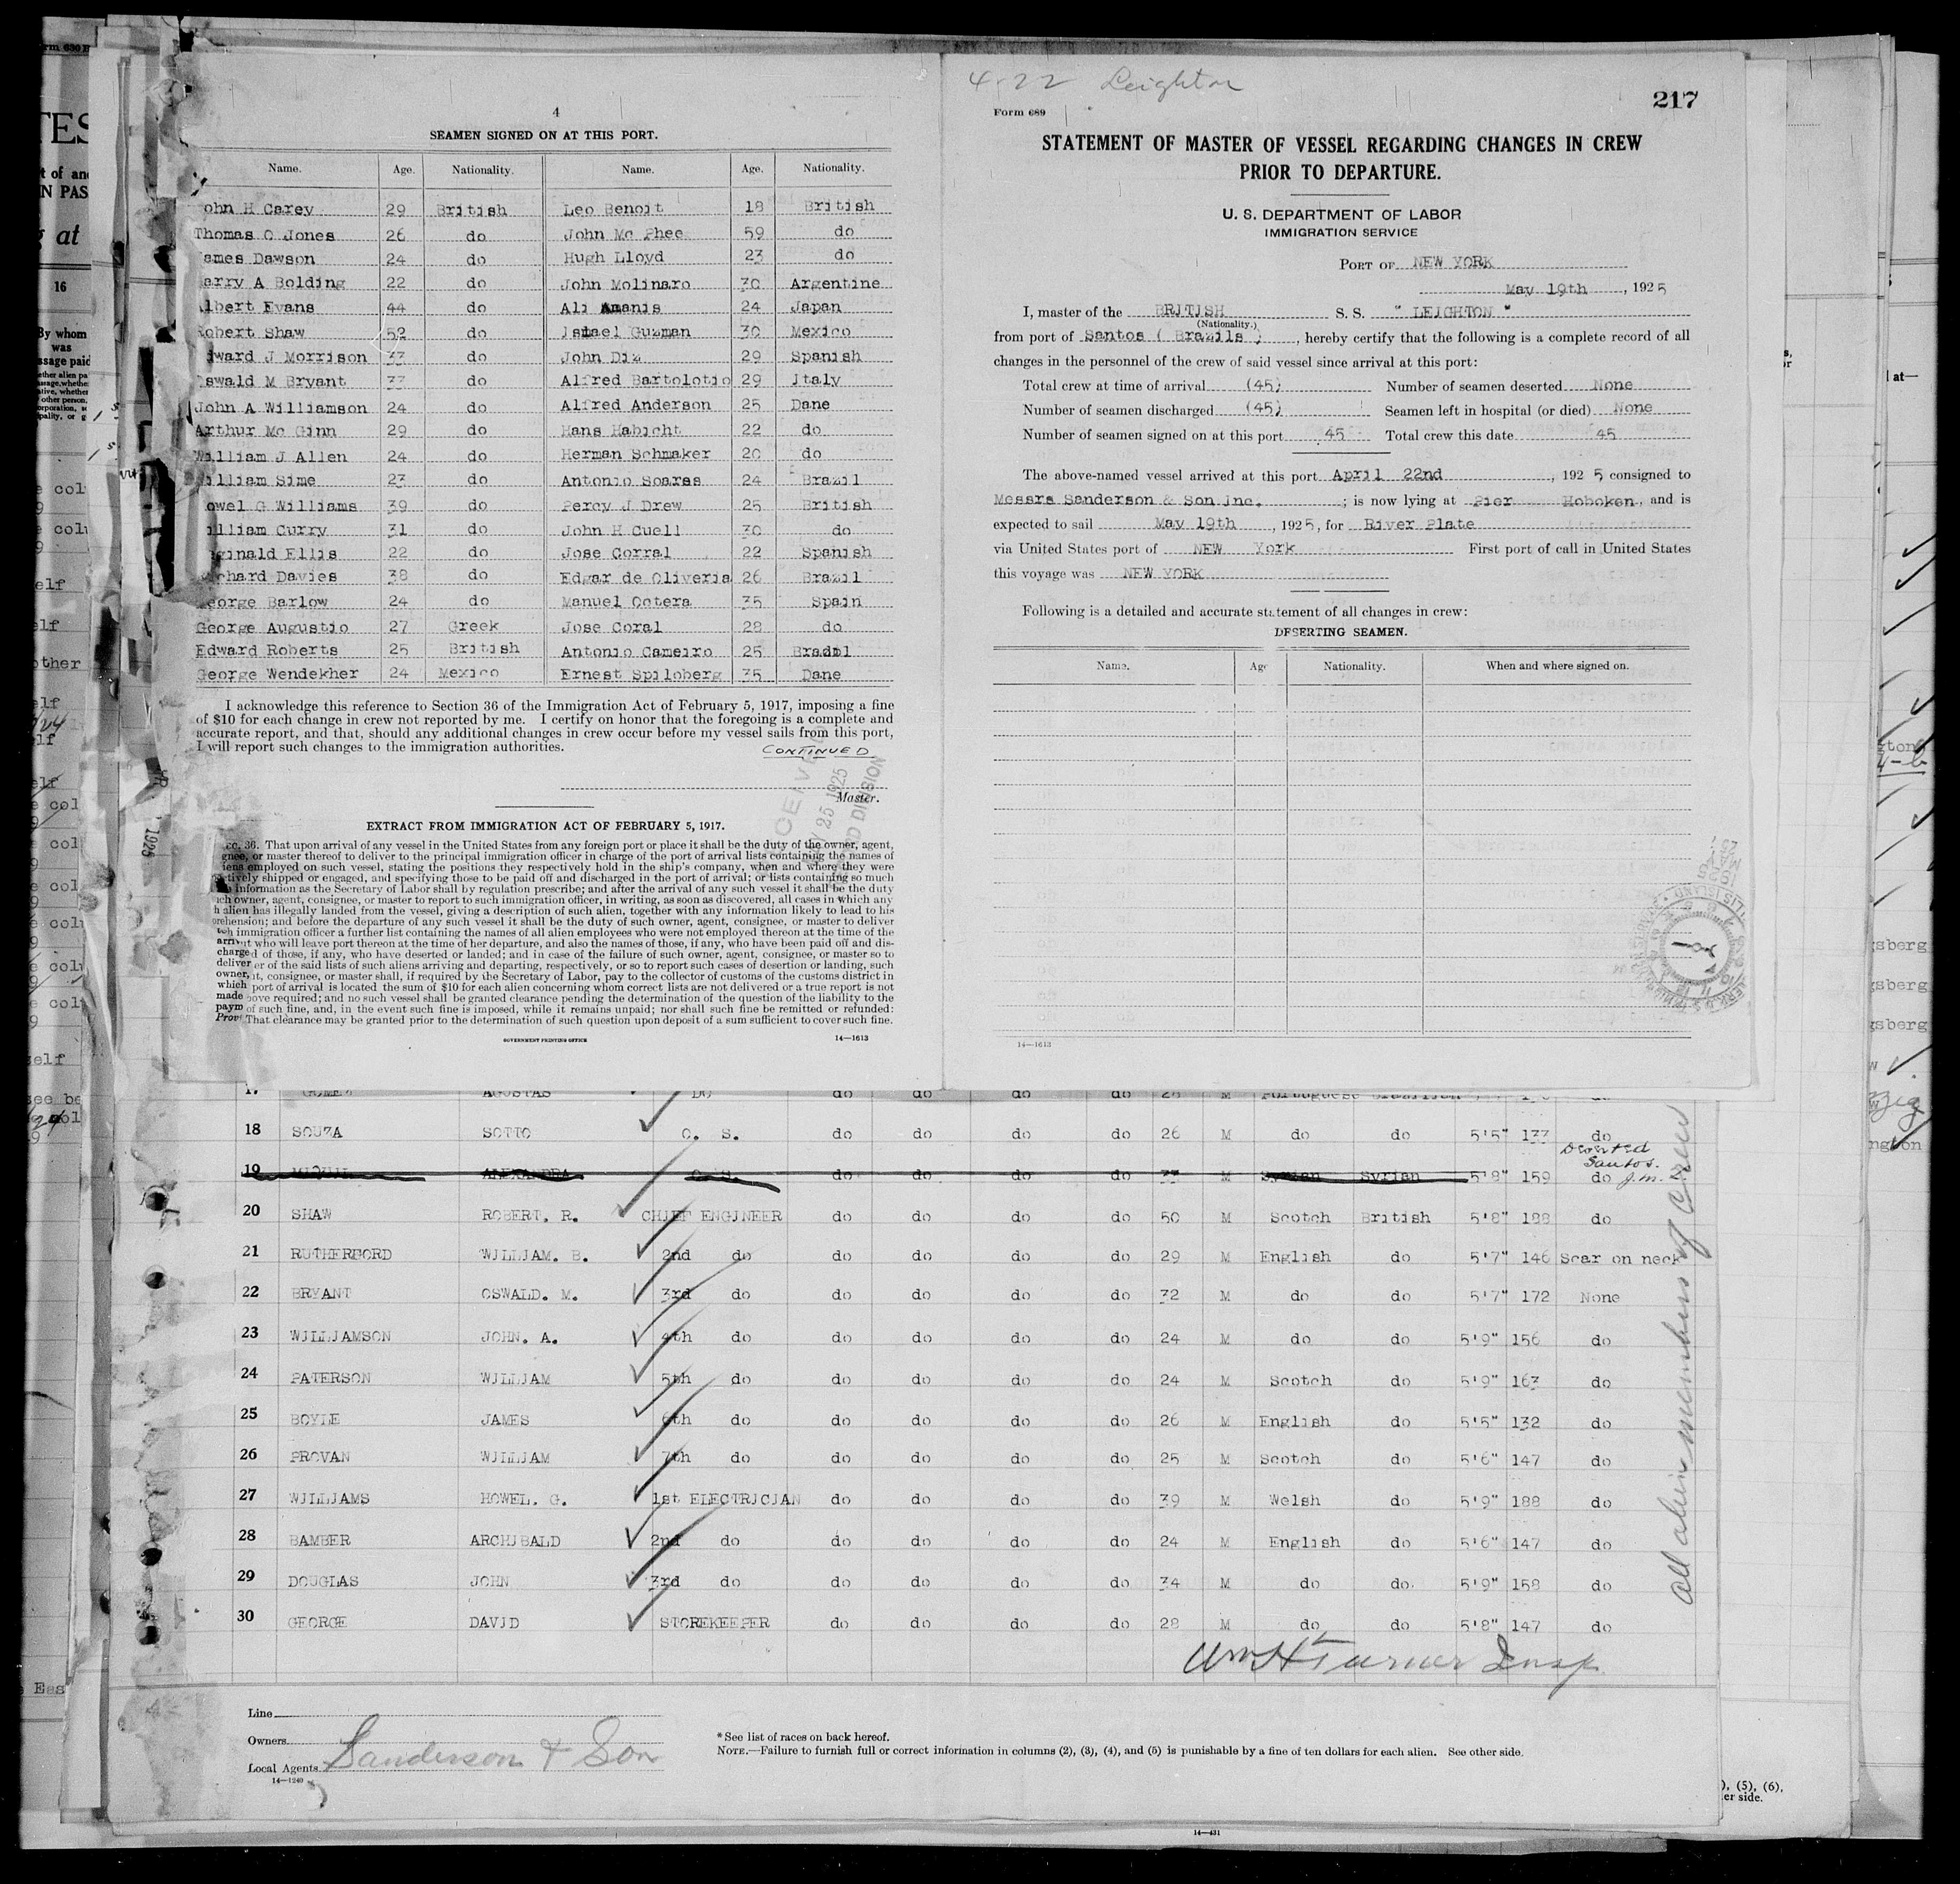 4
SEAMEN SIGNED ON AT THIS PORT.
Name. Age. Nationality. Name. Age. Nationality.
ohn H Carey 29 British Leo Benoit 18 British
Thomas O Jones 26 do John Mc Phee 59 do
ames Dawson 24 do Hugh Lloyd 23 do
arry A Bolding 22 do John Molinaro 30 Argentine
lbert Evans 44 do Ali Amanis 24 Japan
Robert Shaw 52 do Ismael Guzman 30 Mexico
dward J Morrison 33 do John Diz 29 Spanish
swald M Bryant 33 do Alfred Bartolotio 29 Jtaly
John A Williamson 24 do Alfred Anderson 25 Dane
Arthur Mc Ginn 29 do Hans Habicht 22 do
William J Allen 24 do Herman Schmaker 20 do
illiam Sime 23 do Antonio Soares 24 Brazil
owel G Williams 39 do Percy J Drew 25 British
illiam Curry 31 do John H Cuell 30 do
ginald Ellis 22 do Jose Corral 22 Spanish
chard Davies 38 do Edgar de Oliveria 26 Brazil
eorge Barlow 24 do Manuel Cotera 35 Spain
George Augustio 27 Greek Jose Coral 28 do
Edward Roberts 25 British Antonio Cameiro 25
George Wendekher 24 Mexico Ernest Spiloberg 35 Dane
I acknowledge this reference to Section 36 of the Immigration Act of February 5, 1917, imposing a fine
of $10 for each change in crew not reported by me. I certify on honor that the foregoing is a complete and
accurate report, and that, should any additional changes in crew occur before my vessel sails from this port,
I will report such changes to the immigration authorities.
CONTINUED
Master.
EXTRACT FROM IMMIGRATION ACT OF FEBRUARY 5, 1917.
ec. 36. That upon arrival of any vessel in the United States from any foreign port or place it shall be the duty of the owner, agent,
gnee, or master thereof to deliver to the principal immigration officer in charge of the port of arrival lists containing the names of
iens employed on such vessel, stating the positions they respectively hold in the ship's company, when and where they were
ctively shipped or engaged, and specifying those to be paid off and discharged in the port of arrival; or lists containing so much
information as the Secretary of Labor shall by regulation prescribe; and after the arrival of any such vessel it shall be the duty
ich owner, agent, consignee, or master to report to such immigration officer, in writing, as soon as discovered, all cases in which any
h alien has illegally landed from the vessel, giving a description of such alien, together with any information likely to lead to his
prehension; and before the departure of any such vessel it shall be the duty of such owner, agent, consignee, or master to deliver
immigration officer a further list containing the names of all alien employees who were not employed thereon at the time of the
arrival but who will leave port thereon at the time of her departure, and also the names of those, if any, who have been paid off and dis-
charged d of those, if any, who have deserted or landed; and in case of the failure of such owner, agent, consignee, or master so to
deliver er of the said lists of such aliens arriving and departing, respectively, or so to report such cases of desertion or landing, such
owner, it, consignee, or master shall, if required by the Secretary of Labor, pay to the collector of customs of the customs district in
which port of arrival is located the sum of $10 for each alien concerning whom correct lists are not delivered or a true report is not
made ove required; and no such vessel shall be granted clearance pending the determination of the question of the liability to the
paym of such fine, and, in the event such fine is imposed, while it remains unpaid; nor shall such fine be remitted or refunded:
Prov That clearance may be granted prior to the determination of such question upon deposit of a sum sufficient to cover such fine.
GOVERNMENT PRINTING OFFICE 14—1613
4-22 Leighton
Form 689
217
STATEMENT OF MASTER OF VESSEL REGARDING CHANGES IN CREW
PRIOR TO DEPARTURE.
U. S. DEPARTMENT OF LABOR
IMMIGRATION SERVICE
PORT OF NEW YORK
May 19th, 1925
I, master of the BRITISH S. S. " LEIGHTON "
(Nationality.)
from port of Santos ( Brazils ), hereby certify that the following is a complete record of all
changes in the personnel of the crew of said vessel since arrival at this port:
Total crew at time of arrival (45) Number of seamen deserted None
Number of seamen discharged (45) Seamen left in hospital (or died) None
Number of seamen signed on at this port 45 Total crew this date 45
The above-named vessel arrived at this port April 22nd, 1925 consigned to
Messrs Sanderson & Son Jnc.; is now lying at Pier Hoboken, and is
expected to sail May 19th, 1925, for River Plate
via United States port of NEW York First port of call in United States
this voyage was NEW YORK
Following is a detailed and accurate statement of all changes in crew:
DESERTING SEAMEN.
Name. Age Nationality. When and where signed on.
14—1613
17 GOMEZ AGUSTAS DO do do do do 28 M Portuguese Brazilian do
18 SOUZA SOTTO O. S. do do do do 26 M do do 5'5" 133 do
Deserted
Santos.
19 ALEXANDRA O. S. do do do do 33 M Syrian Syrian 5'8" 159 do J.M.
20 SHAW ROBERT. R. CHJEF ENGJNEER do do do do 50 M Scotch British 5'8" 188 do
21 RUTHERFORD WJLLJAM. B. 2nd do do do do do 29 M English do 5'7" 146 Scar on neck
22 BRYANT OSWALD. M. 3rd do do do do do 32 M do do 5'7" 172 None
23 WJLLJAMSON JOHN. A. 4th do do do do do 24 M do do 5'9" 156 do
24 PATERSON WJLLJAM 5th do do do do do 24 M Scotch do 5'9" 163 do
25 BOYLE JAMES 6th do do do do do 26 M English do 5'5" 132 do
26 PROVAN WJLLJAM 7th do do do do do 25 M Scotch do 5'6" 147 do
27 WJLLJAMS HOWEL. G. 1st ELECTRJCJAN do do do do 39 M Welsh do 5'9" 188 do
28 BAMBER ARCHJBALD 2nd do do do do do 24 M English do 5'6" 147 do
29 DOUGLAS JOHN 3rd do do do do do 34 M do do. 5'9" 158 do
30 GEORGE DAVJD STOREKEEPER do do do do 28 M do do 5'8" 147 do
All alien members of crew
Wm H Turner Insp
Line
Owners
Local Agents Sanderson & Son
14—1240
*See list of races on back hereof.
NOTE.—Failure to furnish full or correct information in columns (2), (3), (4), and (5) is punishable by a fine of ten dollars for each alien. See other side.
), (5), (6),
er side.
14—431